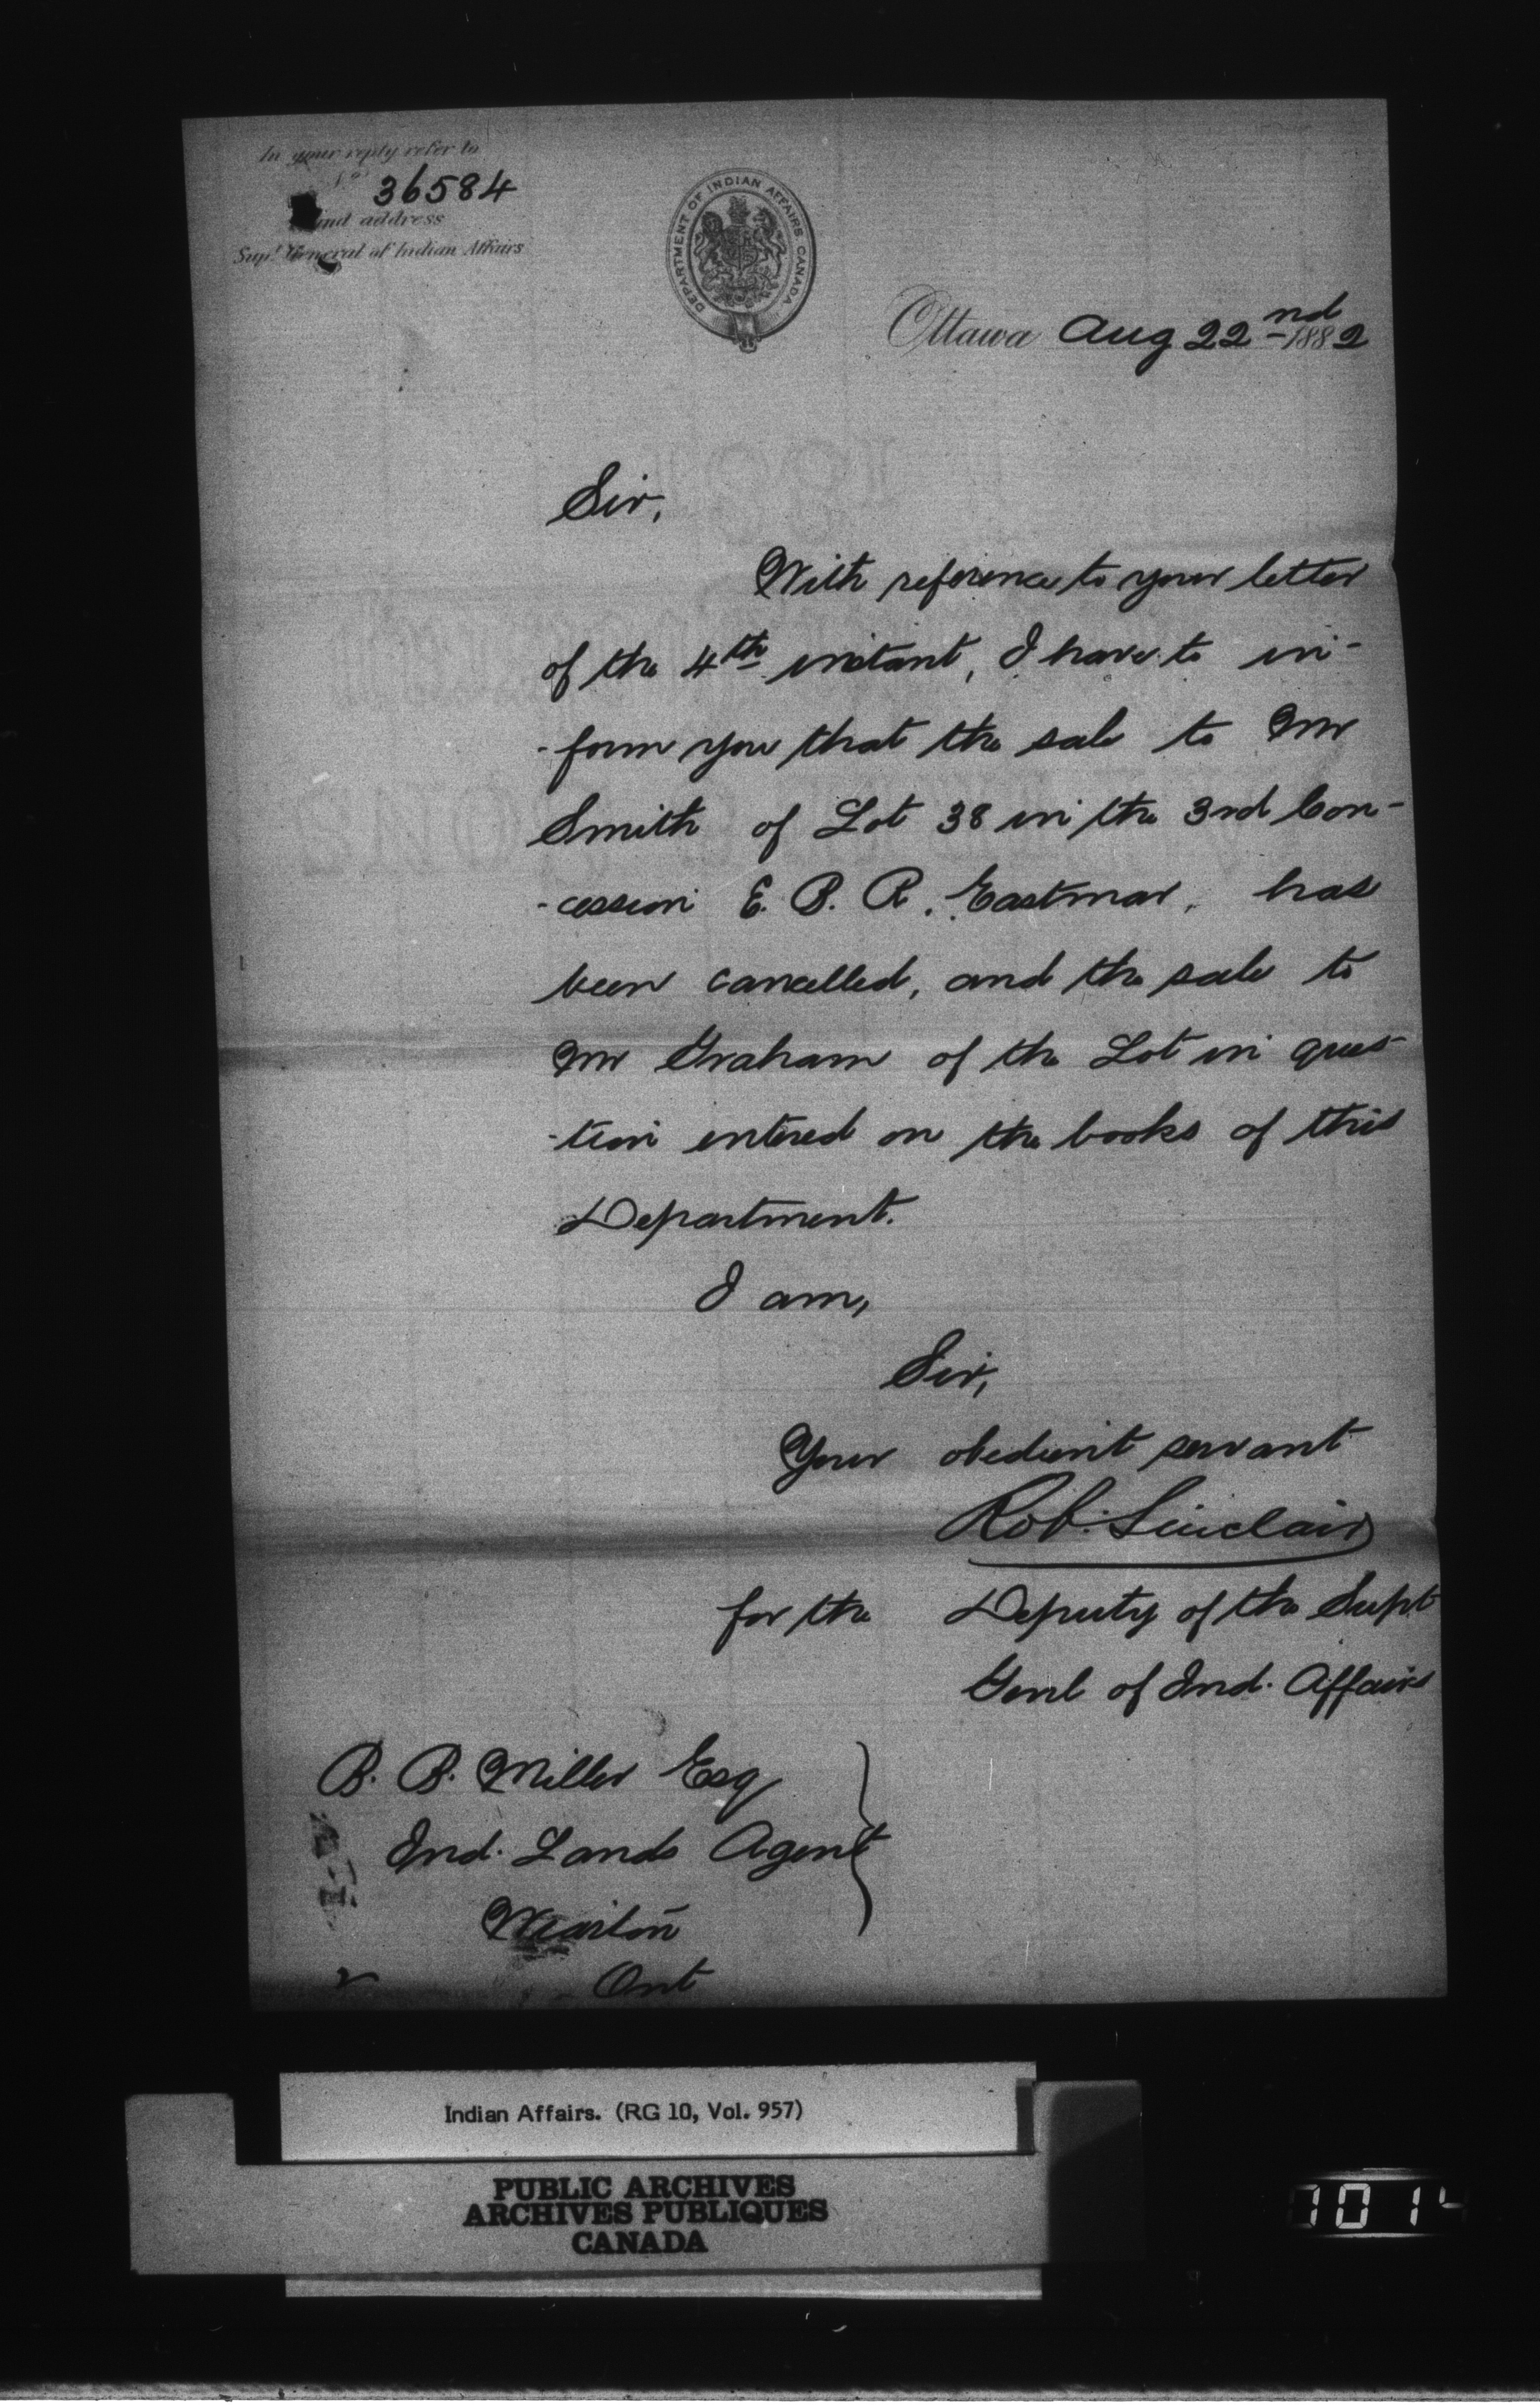 In your reply refer to
No 36584
and address
Supt. General of Indian Affairs
DEPARTMENT OF INDIAN AFFAIRS CANADA
Ottawa Aug 22nd 1882
Sir,
With reference to your letter
of the 4th instant, I have to in-
-form you that the sale to Mr
Smith of Lot 38 in the 3rd Con-
-cession E. B. R. Eastnor, has
been cancelled, and the sale to
Mr Graham of the Lot in ques-
-tion entered on the books of this
Department.
I am,
Sir,
Your obedient servant
Rob. Sinclair
for the Deputy of the Supt
Genl of Ind. Affairs
B. B. Miller Esq
Ind. Lands Agent
Wiarton
Ont
Indian Affairs. (RG 10, Vol. 957)
PUBLIC ARCHIVES
ARCHIVES PUBLIQUES
CANADA